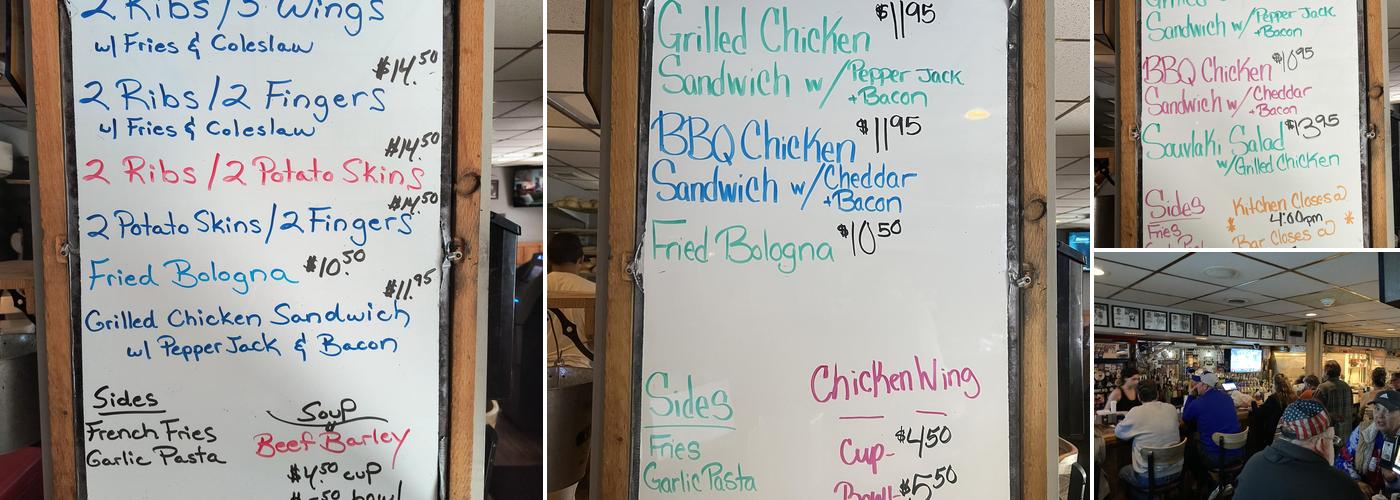 2 Ribs/5 Wings
w/ Fries & Coleslaw
$14.50
2 Ribs/2 Fingers
w/ Fries & Coleslaw
$14.50
2 Ribs/2 Potato Skins
$14.50
2 Potato Skins/2 Fingers
Fried Bologna $10.50
$11.95
Grilled Chicken Sandwich
w/ Pepper Jack & Bacon
Sides
French Fries
Garlic Pasta
Soup
Beef Barley
$4.50 cup
bowl
$11.95
Grilled Chicken
Sandwich w/ Pepper Jack
+Bacon
BBQ Chicken $11.95
Sandwich w/ Cheddar
+Bacon
Fried Bologna $10.50
Sides
Fries
Garlic Pasta
Chicken Wing
Cup- $4.50
Bowl- $5.50
Sandwich w/ Pepper Jack
+Bacon
BBQ Chicken $10.95
Sandwich w/ Cheddar
+Bacon
Souvlaki Salad $13.95
w/ Grilled Chicken
Sides
Fries
Kitchen Closes @
* 4:00pm *
Bar Closes @